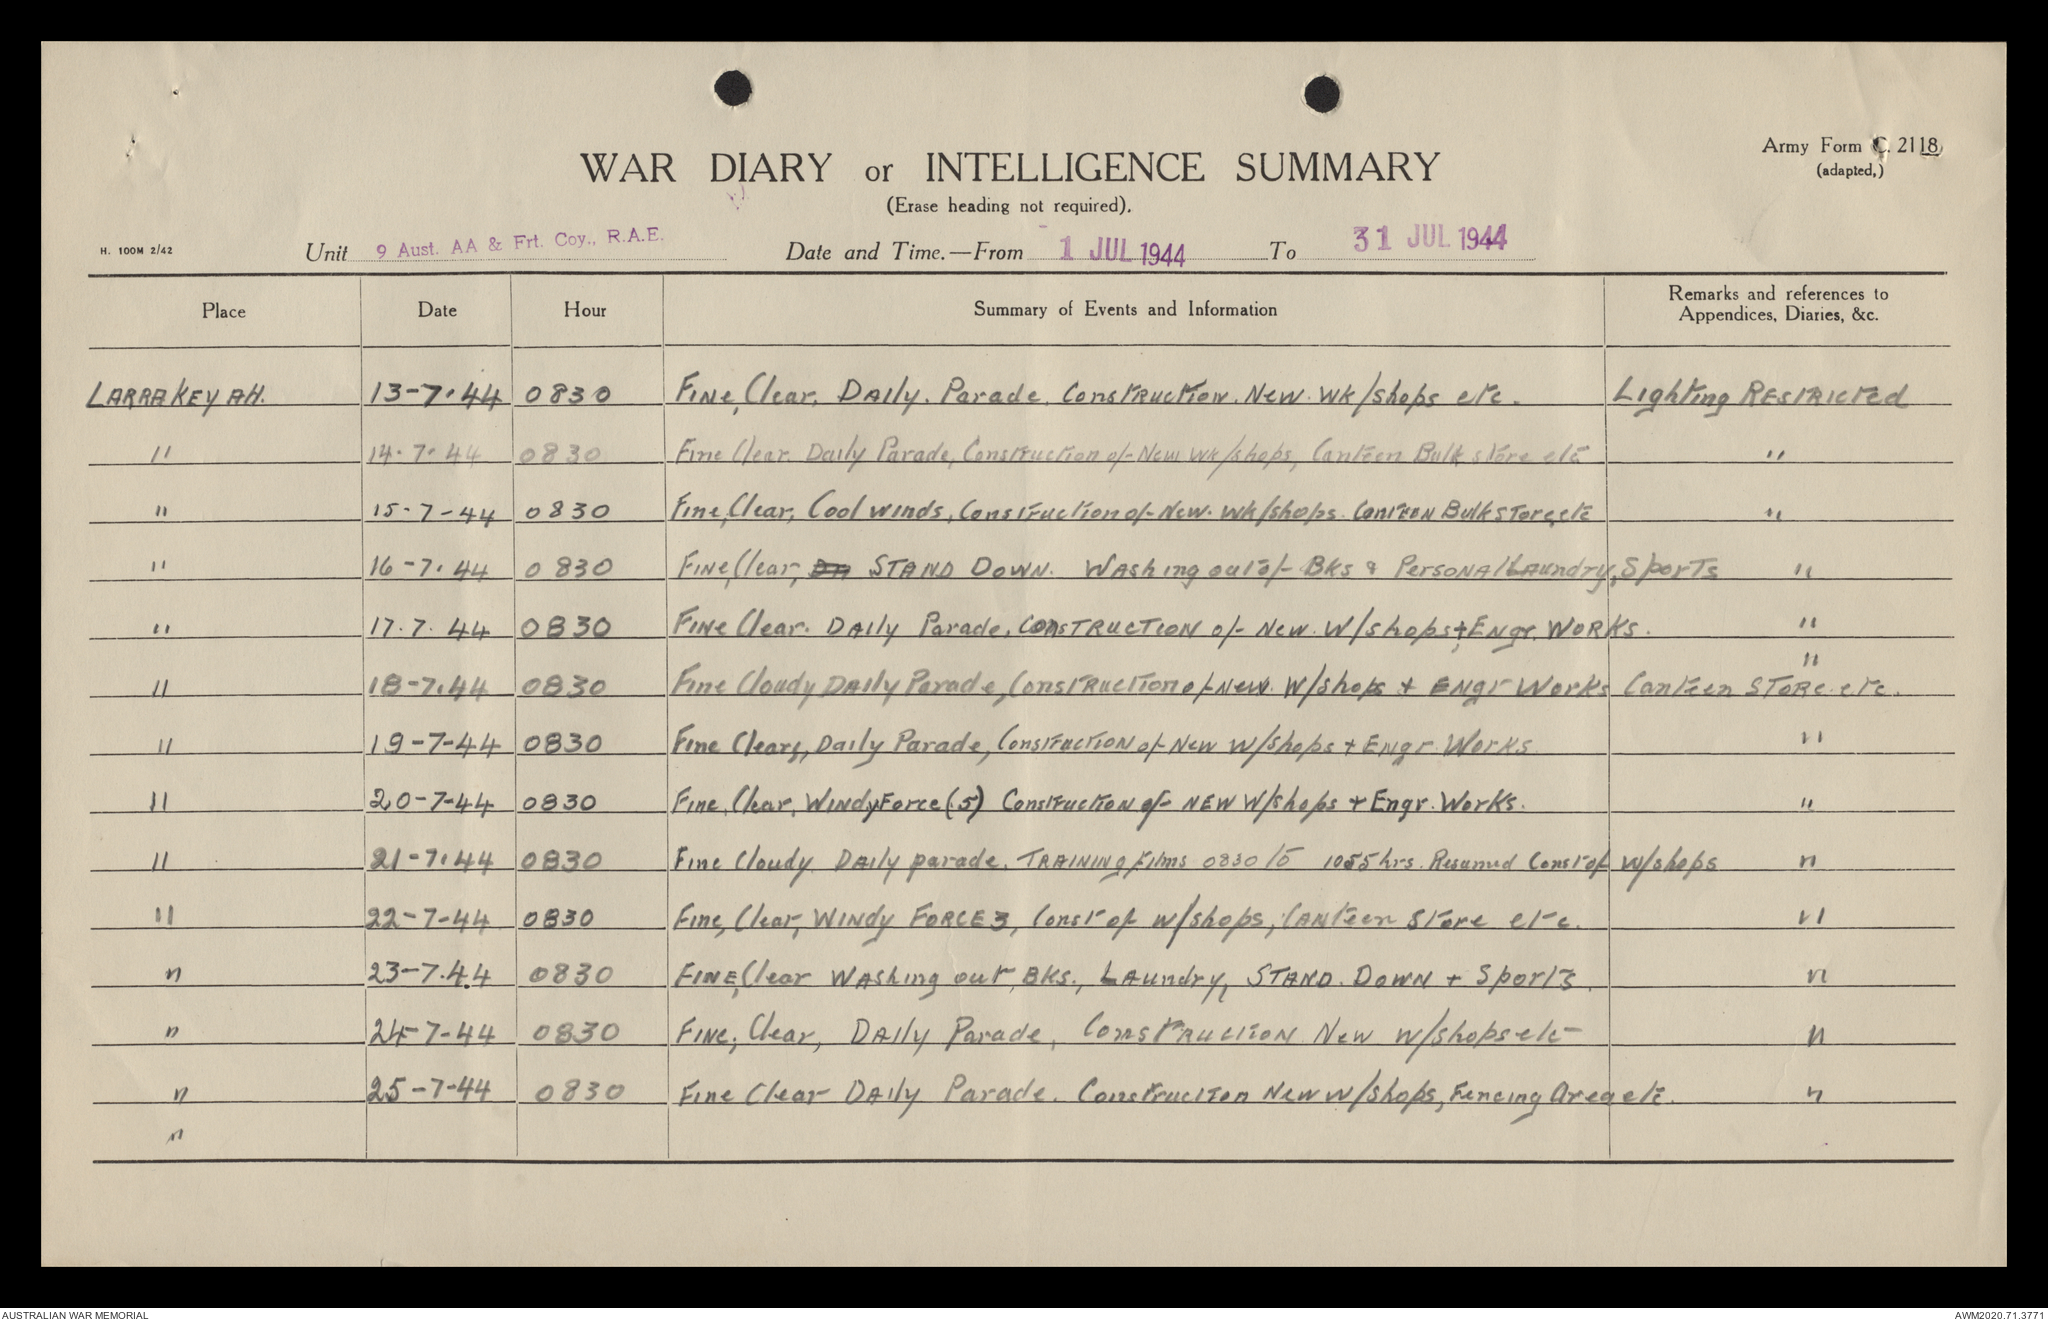 Army Form C. 2118
(adapted.)
WAR DIARY or INTELLIGENCE SUMMARY
(Erase heading not required).
H. 100M 2/42 Unit 9 Aust. AA & Frt. Coy., R.A.E. Date and Time.—From 1 JUL 1944 To 31 JUL 1944
Place Date Hour Summary of Events and Information Remarks and references to
Appendices, Diaries, &c.
LARRAKEYAH. 13-7-44 0830 Fine, Clear, Daily. Parade. Construction. New. Wk/shops etc. Lighting Restricted
" 14-7-44 0830 Fine Clear. Daily Parade, Construction of New Wk/shops, Canteen Bulk store etc "
" 15-7-44 0830 Fine, Clear, Cool winds, Construction of New. Wk/shops. Canteen Bulk Store, etc "
" 16-7-44 0830 Fine, Clear, STAND DOWN. Washing out of Bks & Personal Laundry, Sports "
" 17.7.44 0830 Fine Clear. Daily Parade, Construction of New. W/shops + Engr. Works. "
" 18-7.44 0830 Fine Cloudy Daily Parade, Construction of New. W/shops + Engr Works Canteen Store. etc. "
" 19-7-44 0830 Fine Clear, Daily Parade, Construction of New W/shops + Engr. Works. "
" 20-7-44 0830 Fine, Clear, Windy Force (5) Construction of New W/shops + Engr. Works. "
" 21-7.44 0830 Fine Cloudy Daily parade. Training Films 0830 to 1055 hrs. Resumed Const of W/shops "
" 22-7-44 0830 Fine, Clear, Windy Force 3, Const of W/shops, Canteen Store etc. "
" 23-7.44 0830 Fine, Clear Washing out, Bks., Laundry, Stand. Down + Sports. "
" 24-7-44 0830 Fine, Clear, Daily Parade, Construction New W/shops etc "
" 25-7-44 0830 Fine Clear Daily Parade. Construction New W/shops, Fencing Area etc. "
"
AUSTRALIAN WAR MEMORIAL AWM2020.71.3771